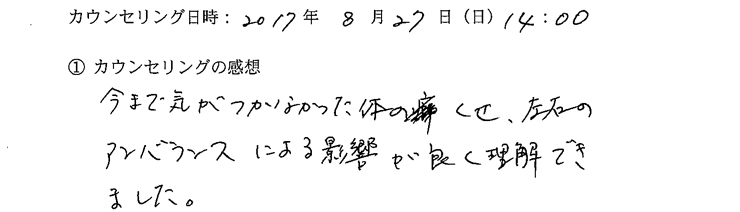 カウンセリング日時：2017年 8月27日（日）14：00
① カウンセリングの感想
今まで気がつかなかった体のくせ、左右の
アンバランスによる影響が良く理解でき
ました。